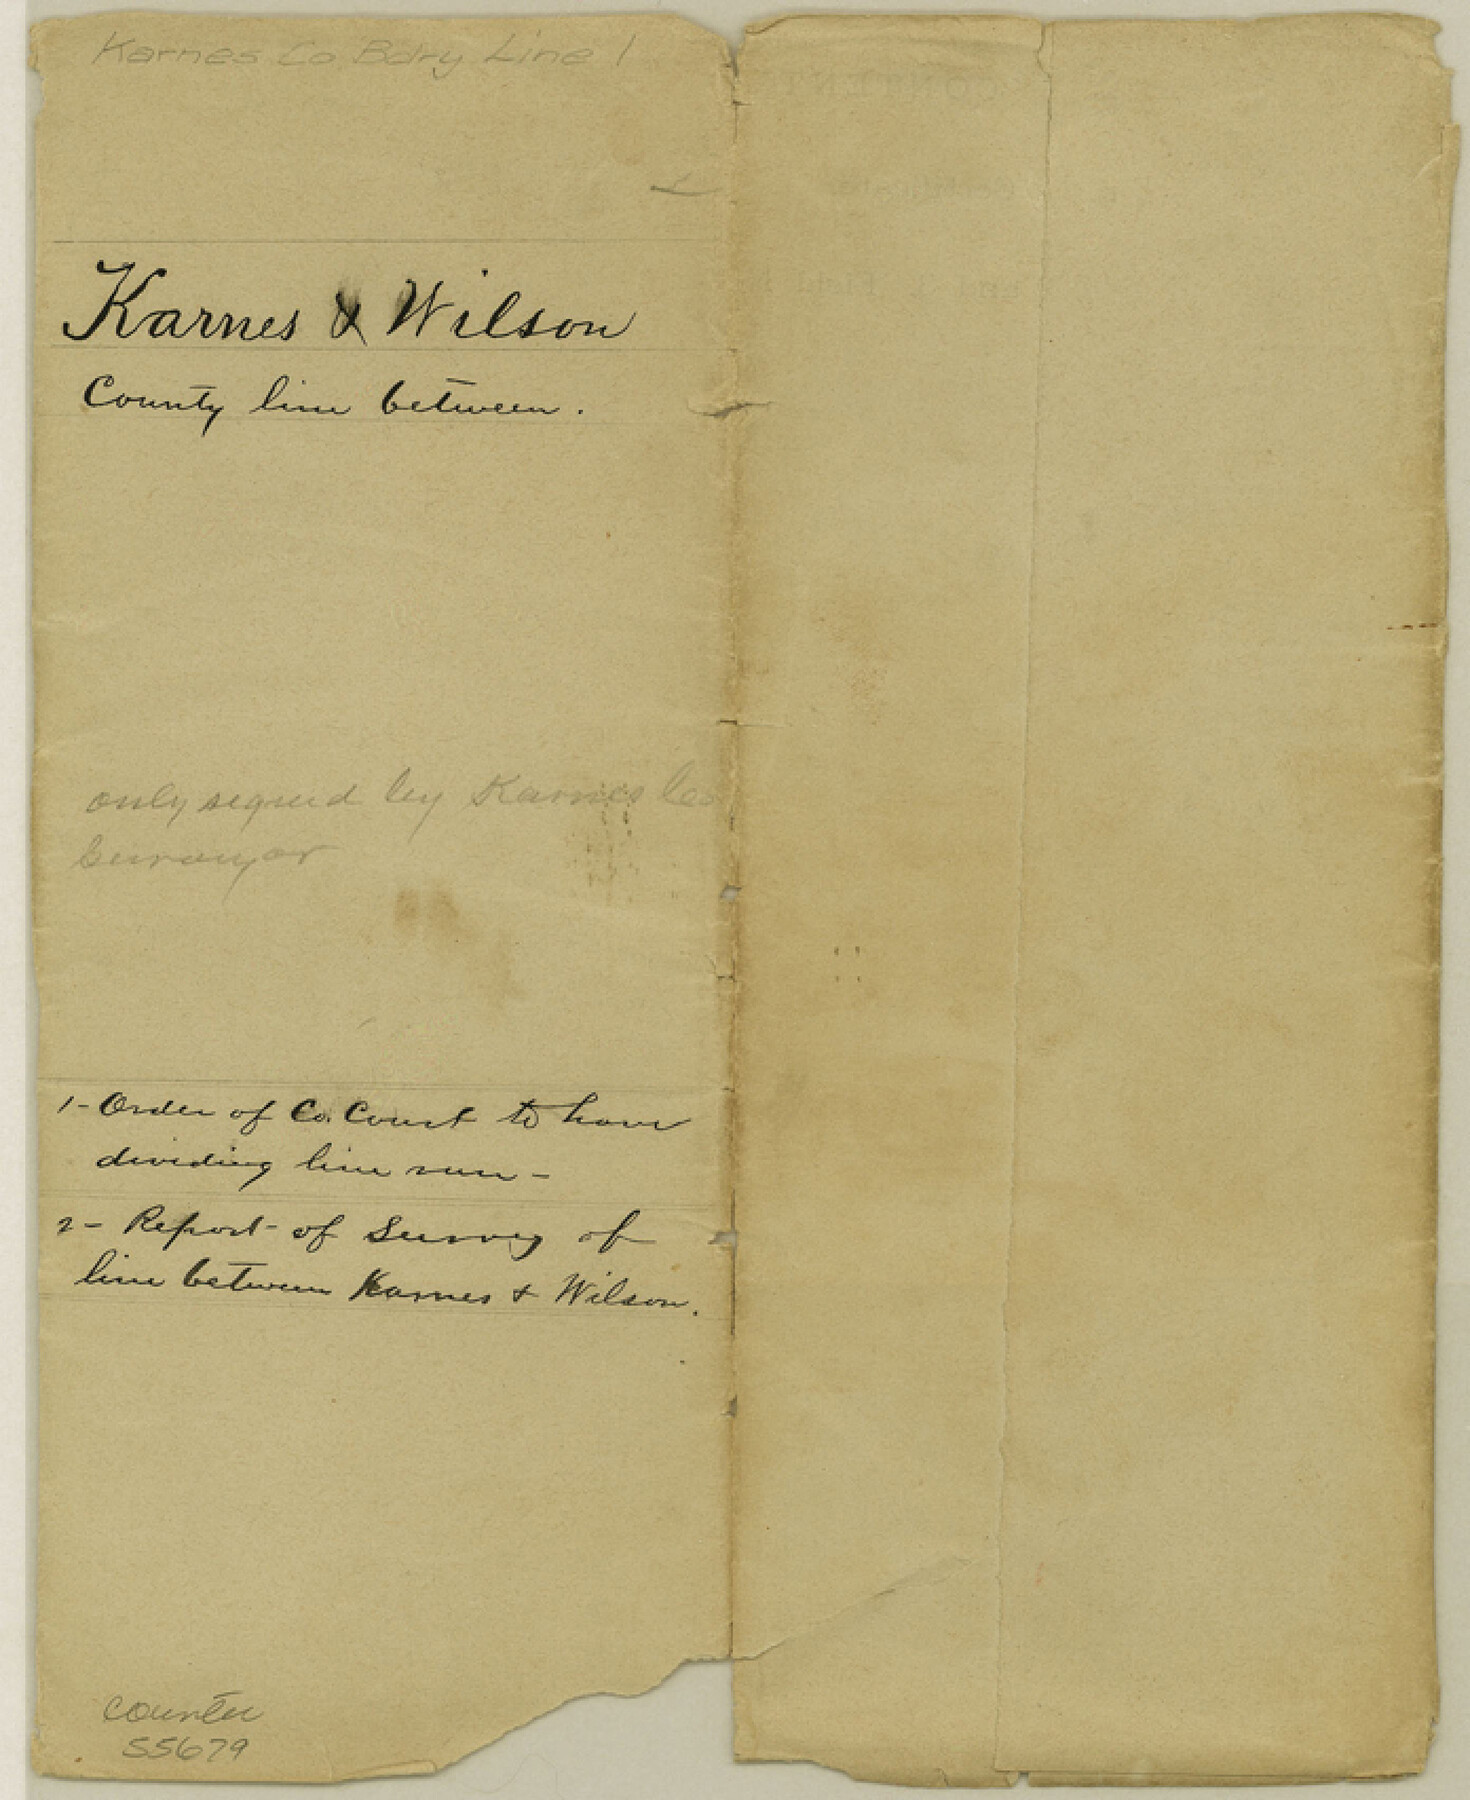 Karnes Co Bdry Line 1
Karnes & Wilson
County line between.
only signed by Karnes Co
Surveyor
1- Order of Co. Court to have
dividing line run -
2- Report of Survey of
line between Karnes & Wilson.
counter
55679